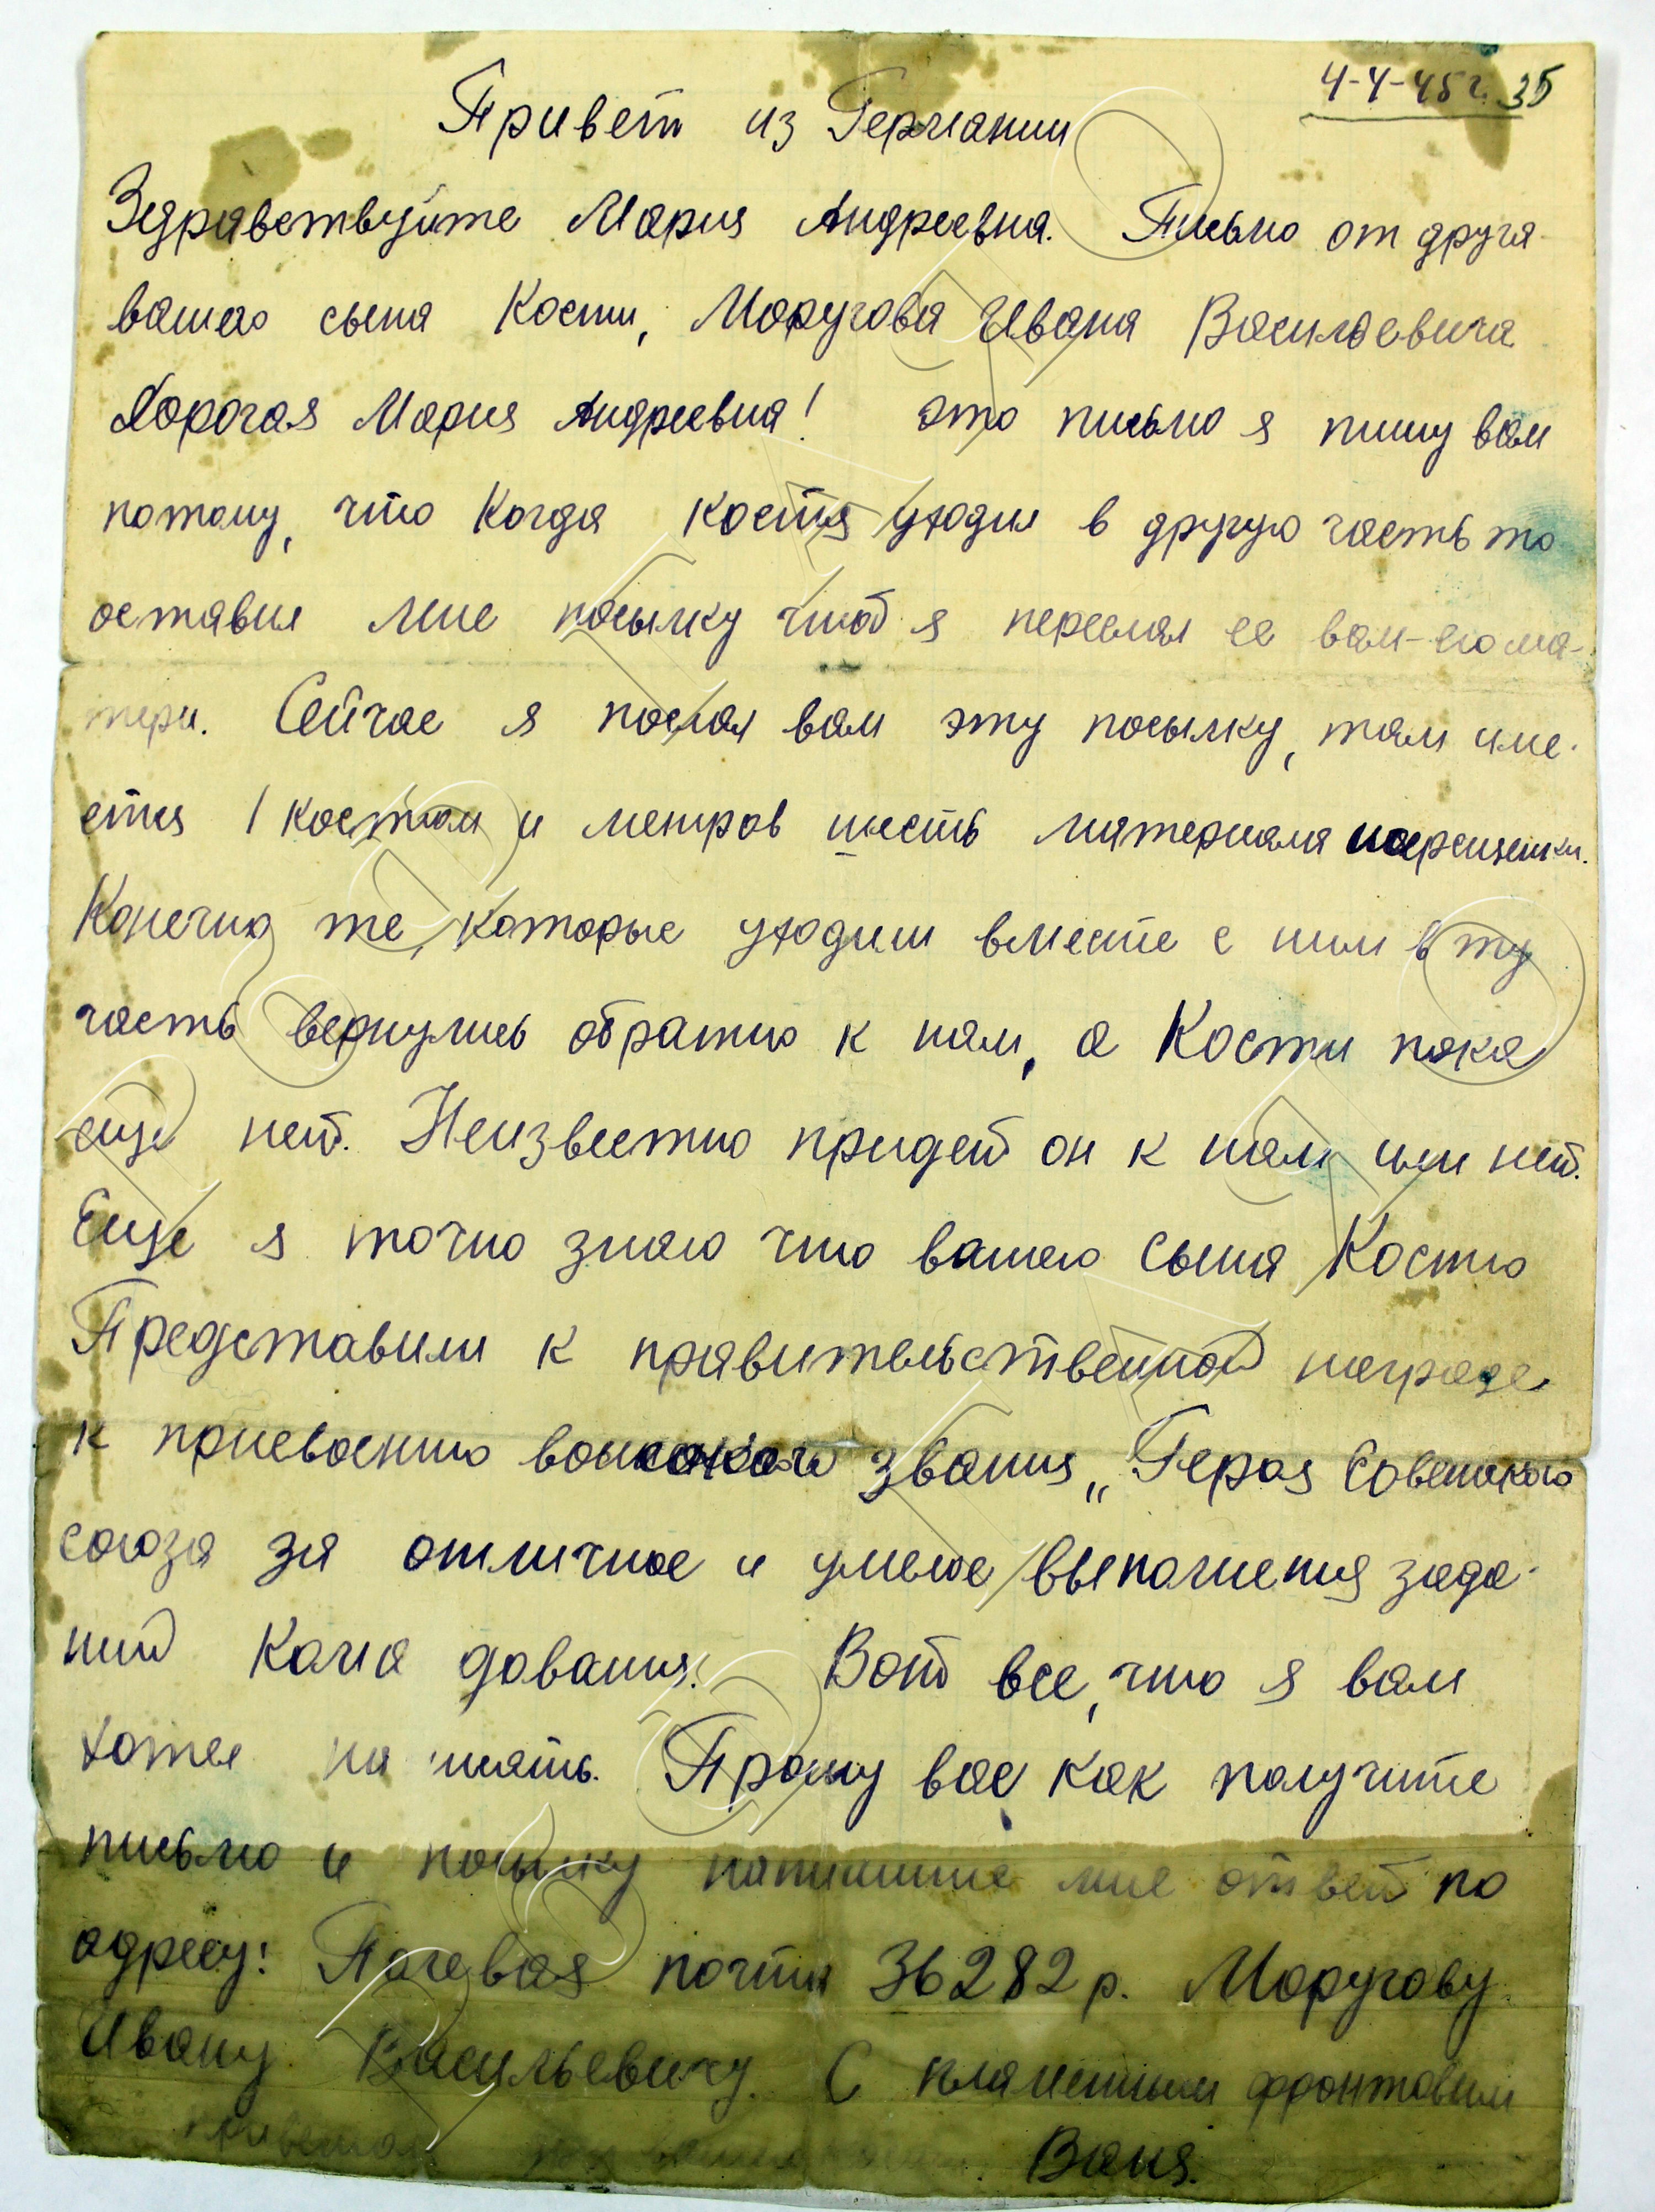 4-4-45 г. 35
Привет из Германии
Здравствуйте Мария Андреевна. Письмо от друга
вашего сына Кости, Моругова Ивана Васильевича
Дорогая Мария Андреевна! Это письмо я пишу вам
потому, что когда Костя уходил в другую часть то
оставил мне посылку чтоб я переслал ее вам-его ма-
тери. Сейчас я послал вам эту посылку, там име-
ется 1 костюм и метров шесть материала
Конечно те, которые уходили вместе с ним в ту
часть вернулись обратно к нам, а Кости пока
еще нет. Неизвестно придет он к нам или нет.
Еще я точно знаю что вашего сына Костю
Представили к правительственной награде
к присвоению звания „Героя Советского
союза за отличное и умелое выполнения зада-
ний Кома дования. Вот все, что я вам
хотел на исать. Прошу вас как получите
письмо и посылку напишите мне ответ по
адресу: Полевая почта 36282 р. Моругову
Ивану Васильевичу. С пламенным фронтовым
приветом Ваня.